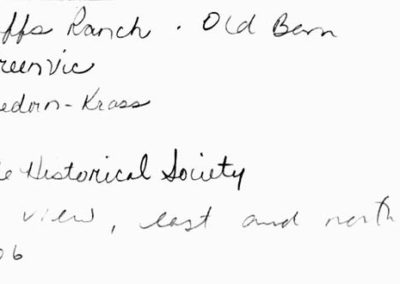 ffs Ranch . Old Barn
reenvic
edorn-Krass
e Historical Society
view, east and north
06